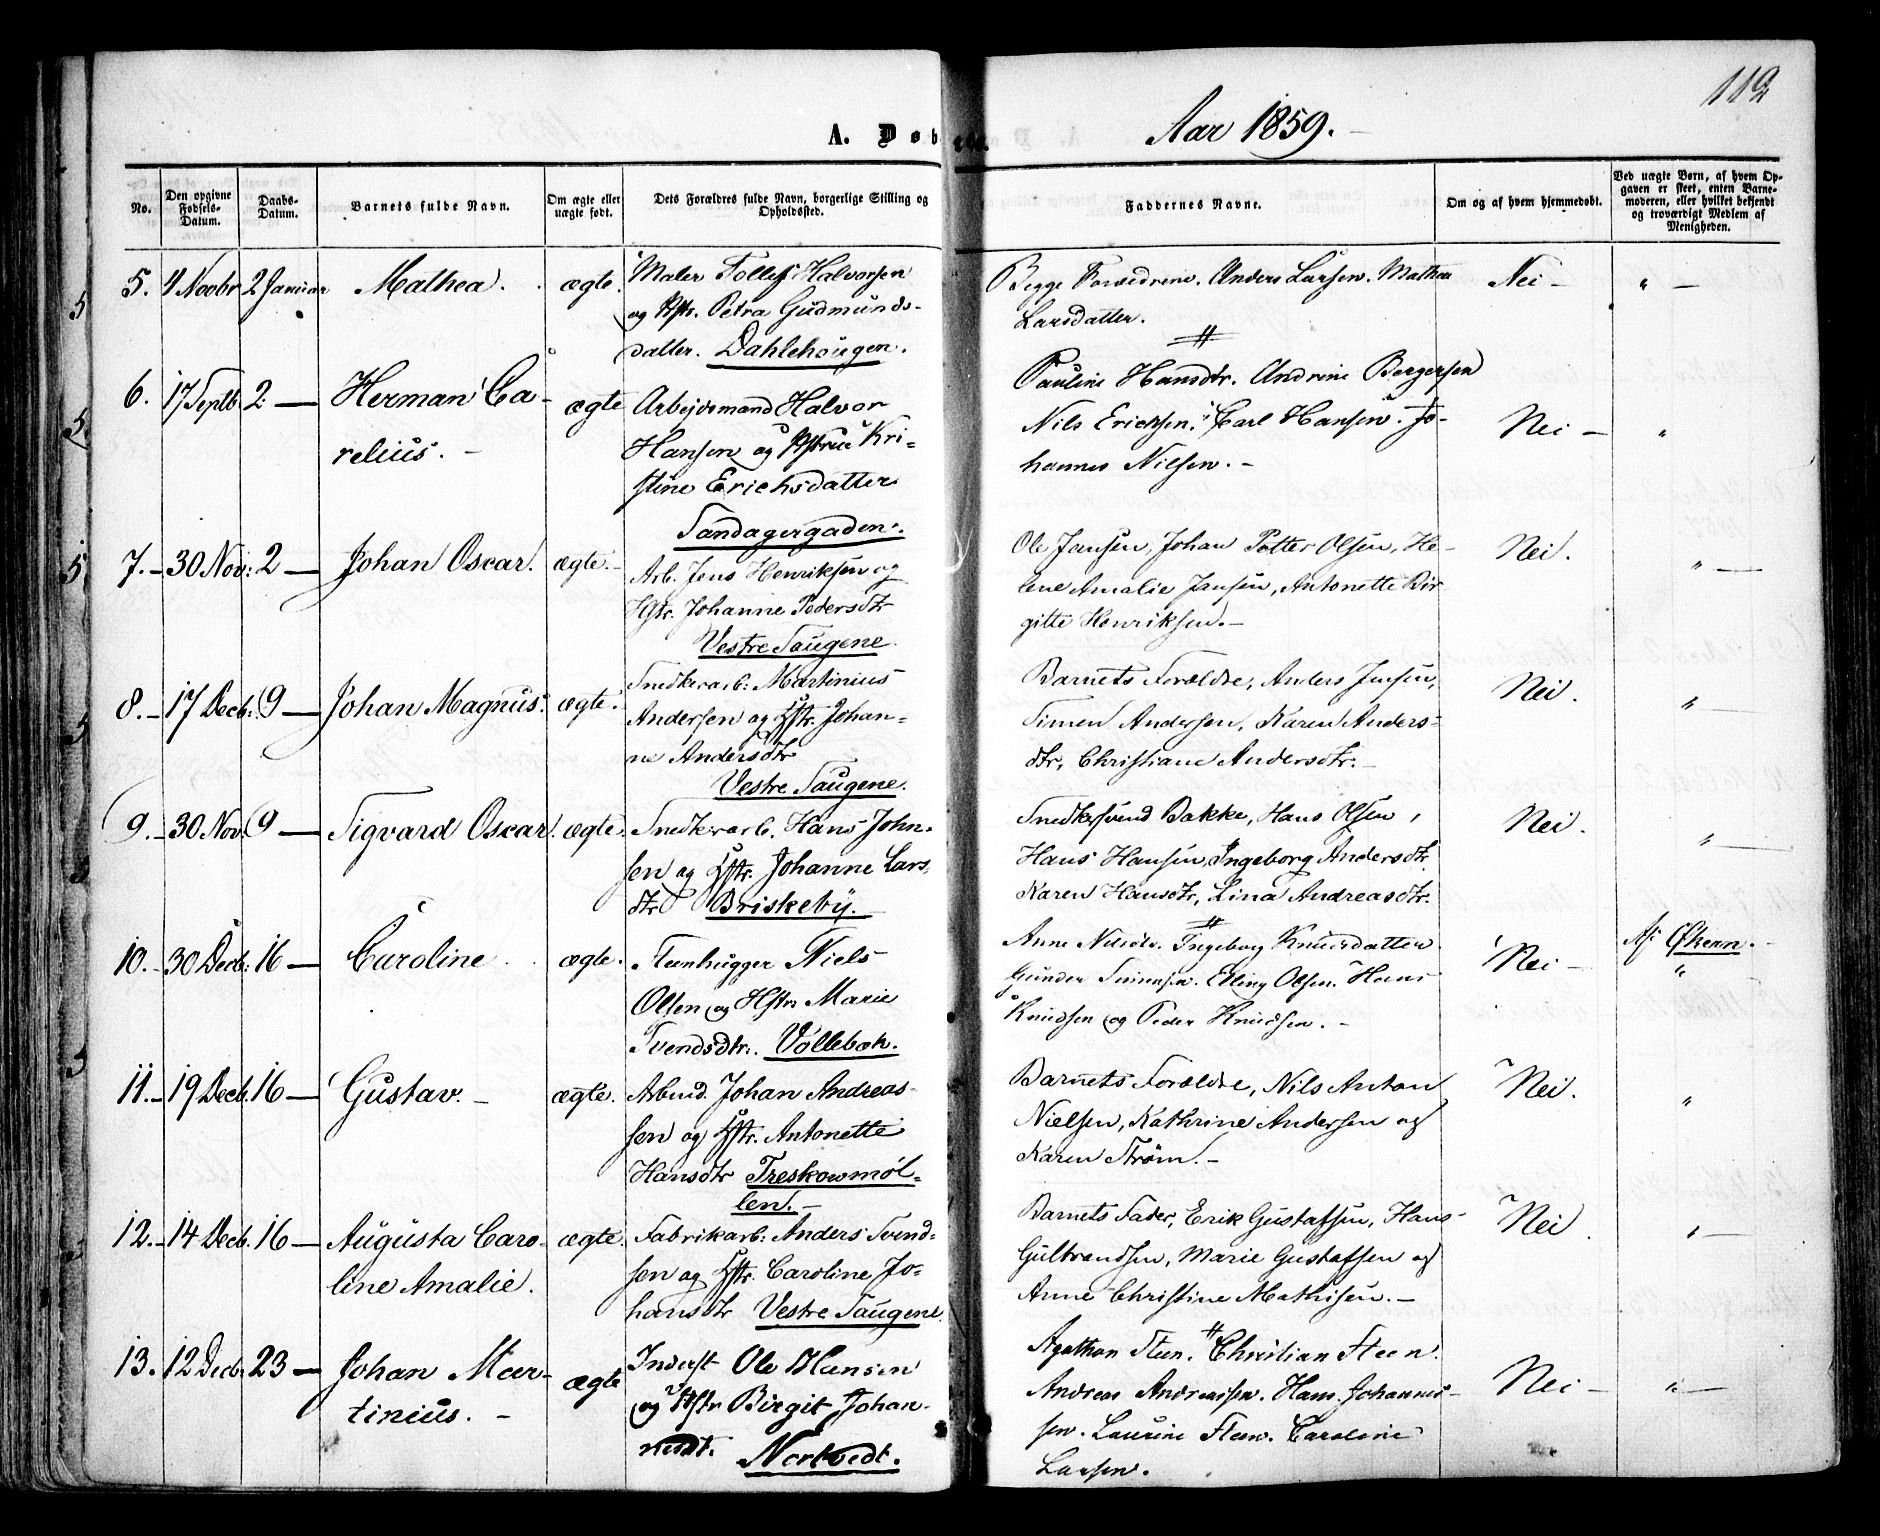 112
A. Døbte.
Aar 1859.
No.
Den opgivne Fødsels-Datum.
Daabs-Datum.
Barnets fulde Navn.
Om ægte eller uægte født.
Dets Forældres fulde Navn, borgerlige Stilling og Opholdssted.
Faddernes Navne.
Om og af hvem hjemmedøbt.
Ved uægte Børn, af hvem Opgaven er skeet, enten Barnemoderen, eller hvilket bekjendt og troværdigt Medlem af Menigheden.
5. 4 Novbr 2 Januar Mathea. ægte.
Maler Tollef Halvorsen
og Hstr. Petra Gudmunds-
datter. Dahlehougen.
Begge Forældrene. Anders Larsen. Mathea
Larsdatter.
Nei — " —
6. 17 Septb 2 — Herman Ca-
relius. —
ægte
Arbeidsmand Halvor
Hansen og Hstrue Kri-
stine Erichsdatter
Sandagergaden.
Pauline Hansdtr. Andrine Bergersen
Nils Erichsen. Carl Hansen. Jo-
hannes Nilsen. —
Nei — "
7. — 30 Nov: 2 — Johan Oscar. ægte. —
Arb. Jens Henriksen og
Hstr. Johanne Pedersdtr
Vestre Saugene.
Ole Jansen, Johan Petter Olsen, He-
lene Amalie Jansen, Antonette Bir
gitte Henriksen. —
Nei. " —
8. — 17 Decb: 9 — Johan Magnus. ægte.
Snedkerarb: Martinius
Andersen og Hstr. Johan-
ne Andersdtr
Vestre Saugene.
Barnets Forældre, Anders Jensen,
Simen Andersen, Karen Anders-
dtr, Christiane Andersdtr. —
Nei. " —
9. — 30 Nov. 9 — Sigvard Oscar. ægte.
Snedkerarb. Hans John-
sen og Hstr. Johanne Lars-
dtr Briskeby.
Snedkersvend Bakke, Hans Olsen,
Hans Hansen, Ingeborg Andersdtr.
Karen Hansdtr, Lina Andreasdtr.
Nei. " —
10. — 30 Decb: 16 — Caroline. ægte.
Steenhugger Niels
Olsen og Hstr Marie
Svendsdtr. Vollebæk.
Anne Nilsdtr. Ingeborg Knudsdatter.
Gunder Simensen. Elling Olsen. Hans
Knudsen og Peder Knudsen. —
Nei —
Af Økern. —
"
11. — 19 Decb. 16 — Gustav. — ægte.
Arbmd. Johan Andreas-
sen og Hstr. Antonette
Hansdtr Treskowmøl-
len. —
Barnets Forældre, Nils Anton
Nielsen, Kathrine Andersen og
Karen Strøm. —
Nei. "
12. — 14 Decb. 16 — Augusta Caro-
line Amalie.
ægte.
Fabrikarb: Anders Svend-
sen og Hstr. Caroline Jo-
hansdtr Vestre Saugene.
Barnets Fader, Erik Gustafsen, Hans
Gulbrandsen, Marie Gustafsen og
Anne Christine Mathisen. —
Nei. " —
13. 12 Decb: 23 — Johan Mar-
tinius. —
ægte
Inderst Ole Hansen
og Hstr Birgit Johan-
nesdt. Nortvedt.
Agathon Steen. Christian Steen.
Andreas Andreassen. Hans Johannes-
sen. Laurine Steen. Caroline
Larsen.
Nei — " —